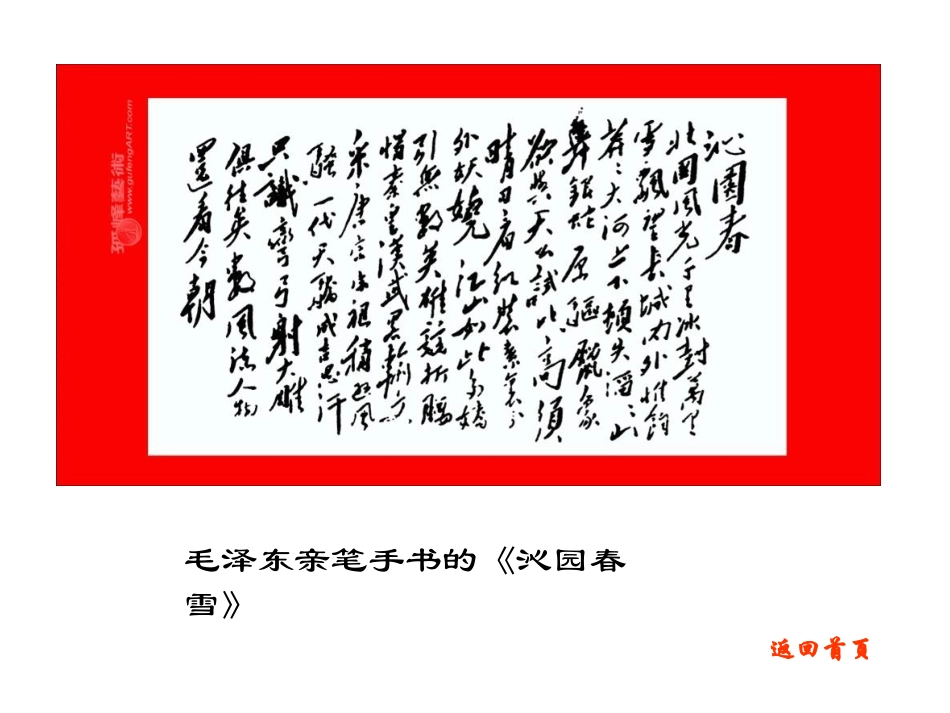 沁園春
北國風光千里冰封萬里
雪飄望長城内外惟餘
莽〻大河上下頓失滔〻山
舞銀蛇原驅臘象
欲與天公試比高須
晴日看紅裝素裹分
外妖嬈江山如此多嬌
引無數英雄競折腰
惜秦皇漢武略輸文
采唐宗宋祖稍遜風
騷一代天驕成吉思汗
只識彎弓射大雕
俱往矣數風流人物
還看今朝
藝術
www.gufengART.com
毛泽东亲笔手书的《沁园春
雪》
返回首頁